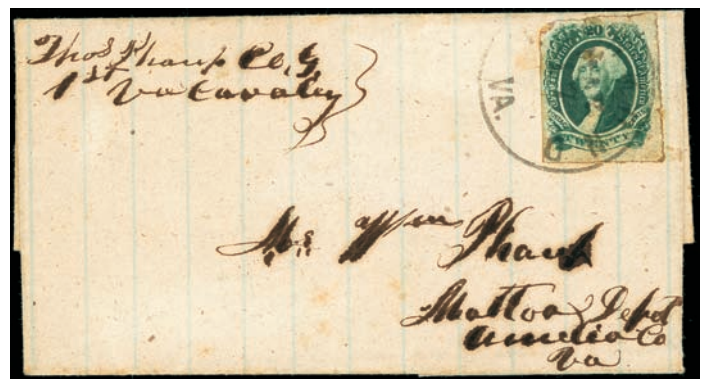 Thos Phaup Co, G
1st Va Cavalry
20
VA.
TWENTY
Phaup
Mattoax Depot
Amelia Co
Va